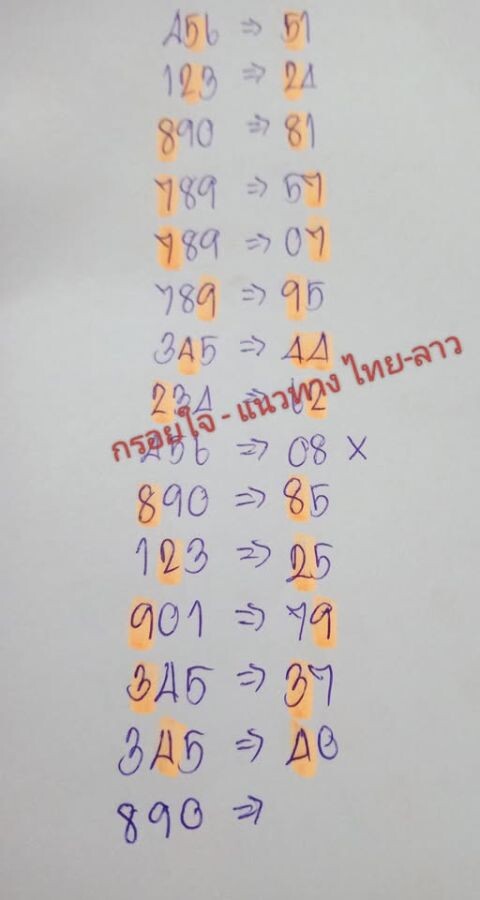 456 ⇒ 51
123 ⇒ 24
890 ⇒ 81
789 ⇒ 57
789 ⇒ 07
789 ⇒ 95
345 ⇒ 44
234 ⇒ 02
456 ⇒ 08 ×
890 ⇒ 85
123 ⇒ 25
901 ⇒ 79
345 ⇒ 37
345 ⇒ 40
890 ⇒
กรอยใจ - แนวทาง ไทย-ลาว